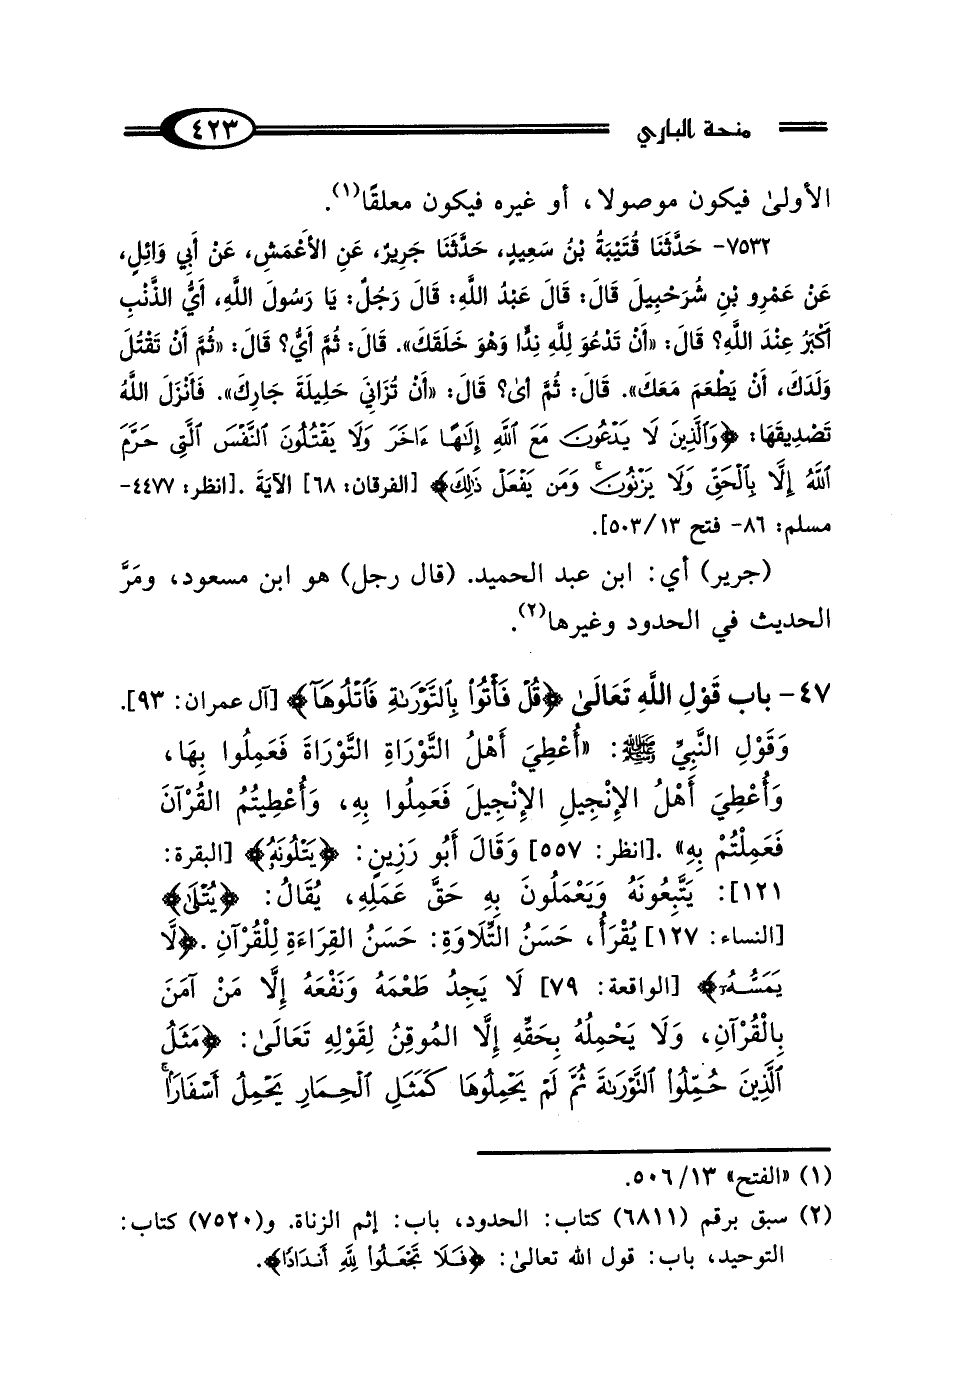 منحة الباري ٤٢٣
الأولىٰ فيكون موصولا، أو غيره فيكون معلقًا(١).
٧٥٣٢- حَدَّثَنَا قُتَيْبَةُ بْنُ سَعِيدٍ، حَدَّثَنَا جَرِيرٌ، عَنِ الأَعْمَشِ، عَنْ أَبِي وَائِلٍ،
عَنْ عَمْرِو بْنِ شُرَحْبِيلَ قَالَ: قَالَ عَبْدُ اللَّهِ: قَالَ رَجُلٌ: يَا رَسُولَ اللَّهِ، أَيُّ الذَّنْبِ
أَكْبَرُ عِنْدَ اللَّهِ؟ قَالَ: «أَنْ تَدْعُوَ لِلَّهِ نِدًّا وَهْوَ خَلَقَكَ». قَالَ: ثُمَّ أَيُّ؟ قَالَ: «ثُمَّ أَنْ تَقْتُلَ
وَلَدَكَ، أَنْ يَطْعَمَ مَعَكَ». قَالَ: ثُمَّ أىٰ؟ قَالَ: «أَنْ تُزَانِيَ حَلِيلَةَ جَارِكَ». فَأَنْزَلَ اللَّهُ
تَصْدِيقَهَا: ﴿وَٱلَّذِينَ لَا يَدْعُونَ مَعَ ٱللَّهِ إِلَٰهًا ءَاخَرَ وَلَا يَقْتُلُونَ ٱلنَّفْسَ ٱلَّتِي حَرَّمَ
ٱللَّهُ إِلَّا بِٱلْحَقِّ وَلَا يَزْنُونَۚ وَمَن يَفْعَلْ ذَٰلِكَ﴾ [الفرقان: ٦٨] الآيَةَ .[انظر: ٤٤٧٧-
مسلم: ٨٦- فتح ١٣/ ٥٠٣].
(جرير) أي: ابن عبد الحميد. (قال رجل) هو ابن مسعود، ومَرَّ
الحديث في الحدود وغيرها(٢).
٤٧- باب قَوْلِ اللَّهِ تَعَالَىٰ ﴿قُلْ فَأْتُوا۟ بِٱلتَّوْرَىٰةِ فَٱتْلُوهَآ﴾ [آل عمران: ٩٣].
وَقَوْلِ النَّبِيِّ ﷺ: «أُعْطِيَ أَهْلُ التَّوْرَاةِ التَّوْرَاةَ فَعَمِلُوا بِهَا،
وَأُعْطِيَ أَهْلُ الإِنْجِيلِ الإِنْجِيلَ فَعَمِلُوا بِهِ، وَأُعْطِيتُمُ القُرْآنَ
فَعَمِلْتُمْ بِهِ» .[انظر: ٥٥٧] وَقَالَ أَبُو رَزِينٍ: ﴿يَتْلُونَهُۥ﴾ [البقرة:
١٢١]: يَتَّبِعُونَهُ وَيَعْمَلُونَ بِهِ حَقَّ عَمَلِهِ، يُقَالُ: ﴿يُتْلَىٰ﴾
[النساء: ١٢٧] يُقْرَأُ، حَسَنُ التِّلَاوَةِ: حَسَنُ القِرَاءَةِ لِلْقُرْآنِ .﴿لَّا
يَمَسُّهُۥٓ﴾ [الواقعة: ٧٩] لَا يَجِدُ طَعْمَهُ وَنَفْعَهُ إِلَّا مَنْ آمَنَ
بِالْقُرْآنِ، وَلَا يَحْمِلُهُ بِحَقِّهِ إِلَّا المُوقِنُ لِقَوْلِهِ تَعَالَىٰ: ﴿مَثَلُ
ٱلَّذِينَ حُمِّلُوا۟ ٱلتَّوْرَىٰةَ ثُمَّ لَمْ يَحْمِلُوهَا كَمَثَلِ ٱلْحِمَارِ يَحْمِلُ أَسْفَارًۢاۚ
(١) «الفتح» ١٣/ ٥٠٦.
(٢) سبق برقم (٦٨١١) كتاب: الحدود، باب: إثم الزناة. و(٧٥٢٠) كتاب:
التوحيد، باب: قول الله تعالىٰ: ﴿فَلَا تَجْعَلُوا۟ لِلَّهِ أَندَادًا﴾.